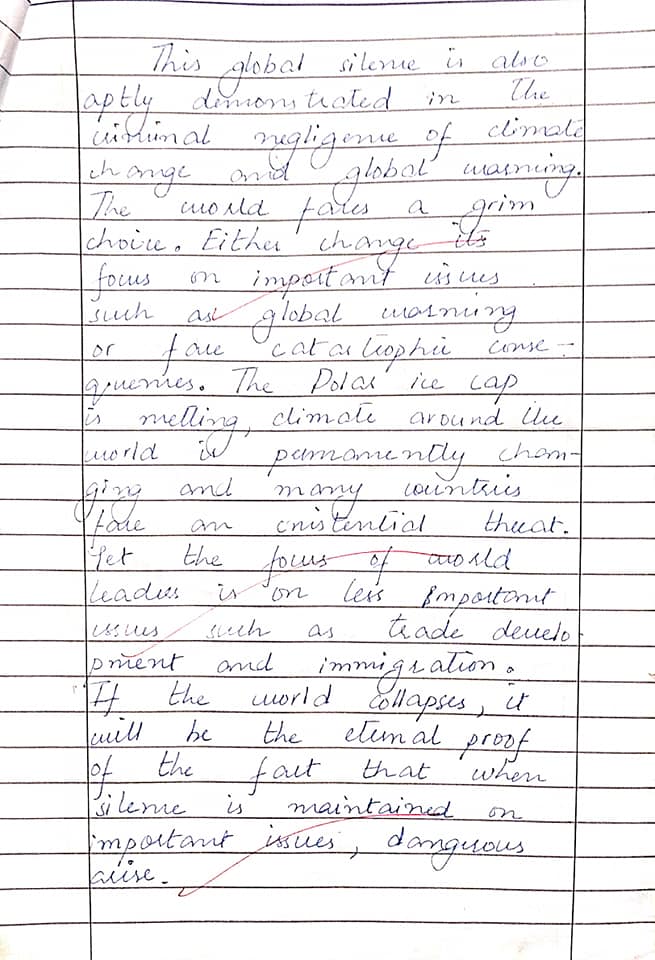 This global silence is also
aptly demonstrated in the
criminal negligence of climate
change and global warming.
The world faces a grim
choice. Either change its
focus on important issues
such as global warming
or face catastrophic conse-
quences. The Polar ice cap
is melting, climate around the
world is permanently chan-
ging and many countries
face an existential threat.
Yet the focus of world
leaders is on less important
issues such as trade develo-
pment and immigration.
If the world collapses, it
will be the eternal proof
of the fact that when
silence is maintained on
important issues, dangerous
arise.